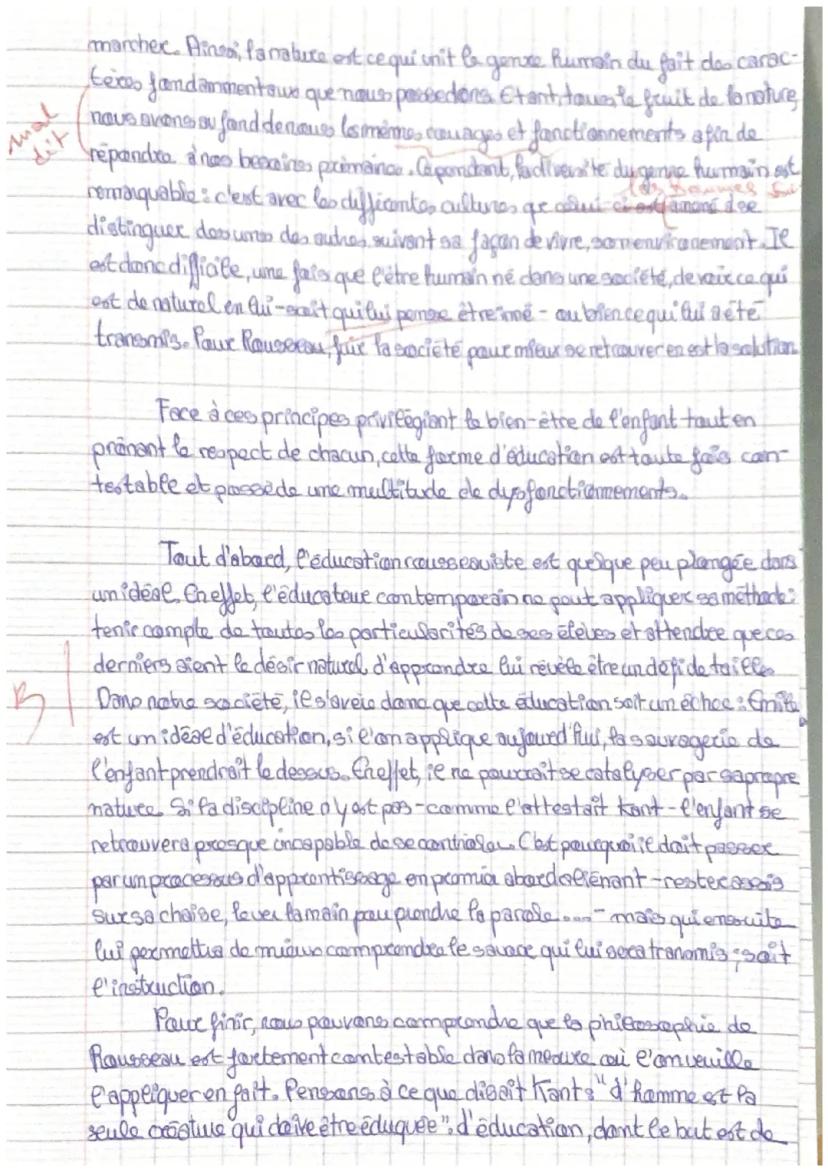 marcher. Ainsi, la nature est ce qui unit le genre humain du fait des carac-
tères fondammentaux que nous possedons. Etant, tous le fruit de la nature,
nous avons au fond de nous les mêmes rouages et fonctionnements afin de
mal dit
répondre à nos besoins primaires. Cependant, la diversité du genre humain est
remarquable : c'est avec les différentes cultures que les hommes
amené de
distinguer les uns des autres, suivant sa façon de vivre, son environnement. Il
est donc difficile, une fois que l'être humain né dans une société, de voir ce qui
est de naturel en lui - soit qui lui pense être inné - ou bien ce qui lui a été
transmis. Pour Rousseau, fuir la société pour mieux se retrouver en est la solution.
Face à ces principes privilégiant le bien-être de l'enfant tout en
prônant le respect de chacun, cette forme d'éducation est toute fois con-
testable et possède une multitude de dysfonctionnements.
Tout d'abord, l'éducation rousseauiste est quelque peu plongée dans
un idéal. En effet, l'éducateur contemporain ne peut appliquer sa méthode :
tenir compte de toutes les particularités de ses élèves et attendre que ces
derniers aient le désir naturel d'apprendre lui révèle être un défi de taille.
B
Dans notre société, il s'avère donc que cette éducation soit un échec : Emile
est un idéal d'éducation, si l'on applique aujourd'hui, la sauvagerie de
l'enfant prendrait le dessus. En effet, il ne pourrait se catalyser par sa propre
nature. Si la discipline n'y est pas - comme l'attestait Kant - l'enfant se
retrouvera presque incapable de se contrôler. C'est pourquoi il doit passer
par un processus d'apprentissage en premier abord aliénant - rester assis
sur sa chaise, lever la main pour prendre la parole .... - mais qui ensuite
lui permettra de mieux comprendre le savoir qui lui sera transmis ; soit
l'instruction.
Pour finir, nous pouvons comprendre que la philosophie de
Rousseau est fortement contestable dans la mesure où l'on veuille
l'appliquer en fait. Pensons à ce que disait Kant : "l'homme est la
seule créature qui doive être éduquée". L'éducation, dont le but est de